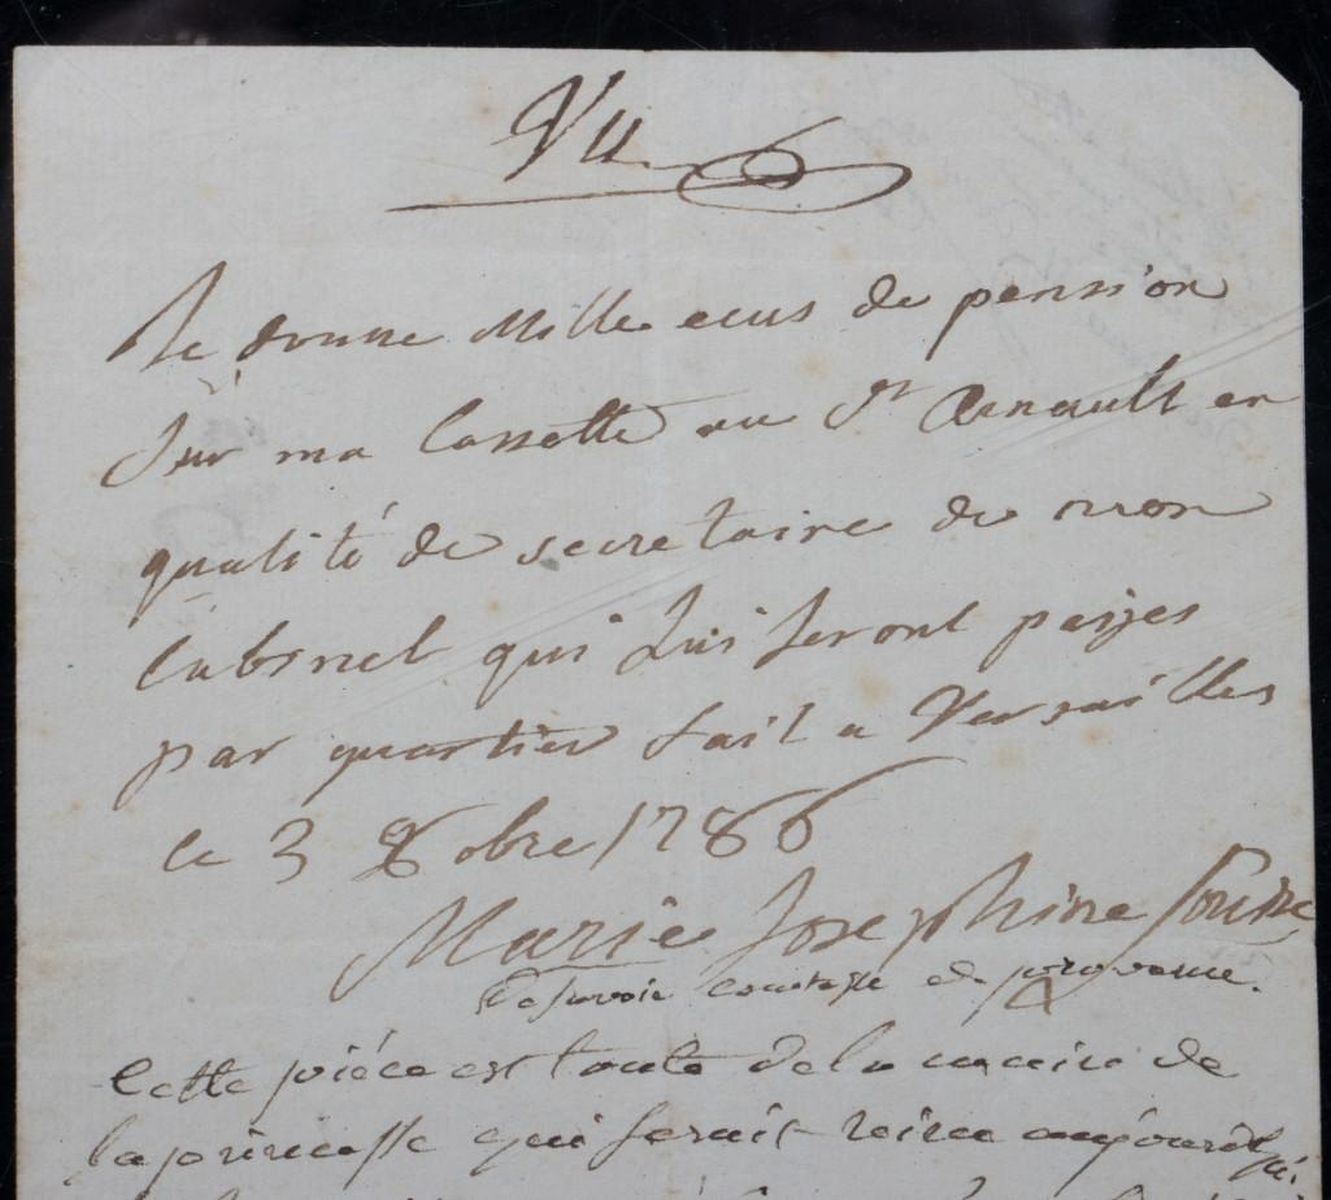 Vu
Je donne Mille ecus de pension
Sur ma Cassette au Sr Arnault en
qualité de secretaire de mon
Cabinet qui Lui Seront payes
par quartier fait a Versailles
le 3 8obre 1786
Marie Josephine Louise
De Savoie comtesse de provence.
Cette pièce est toute de la main de
la princesse qui serait reine aujourd'hui.